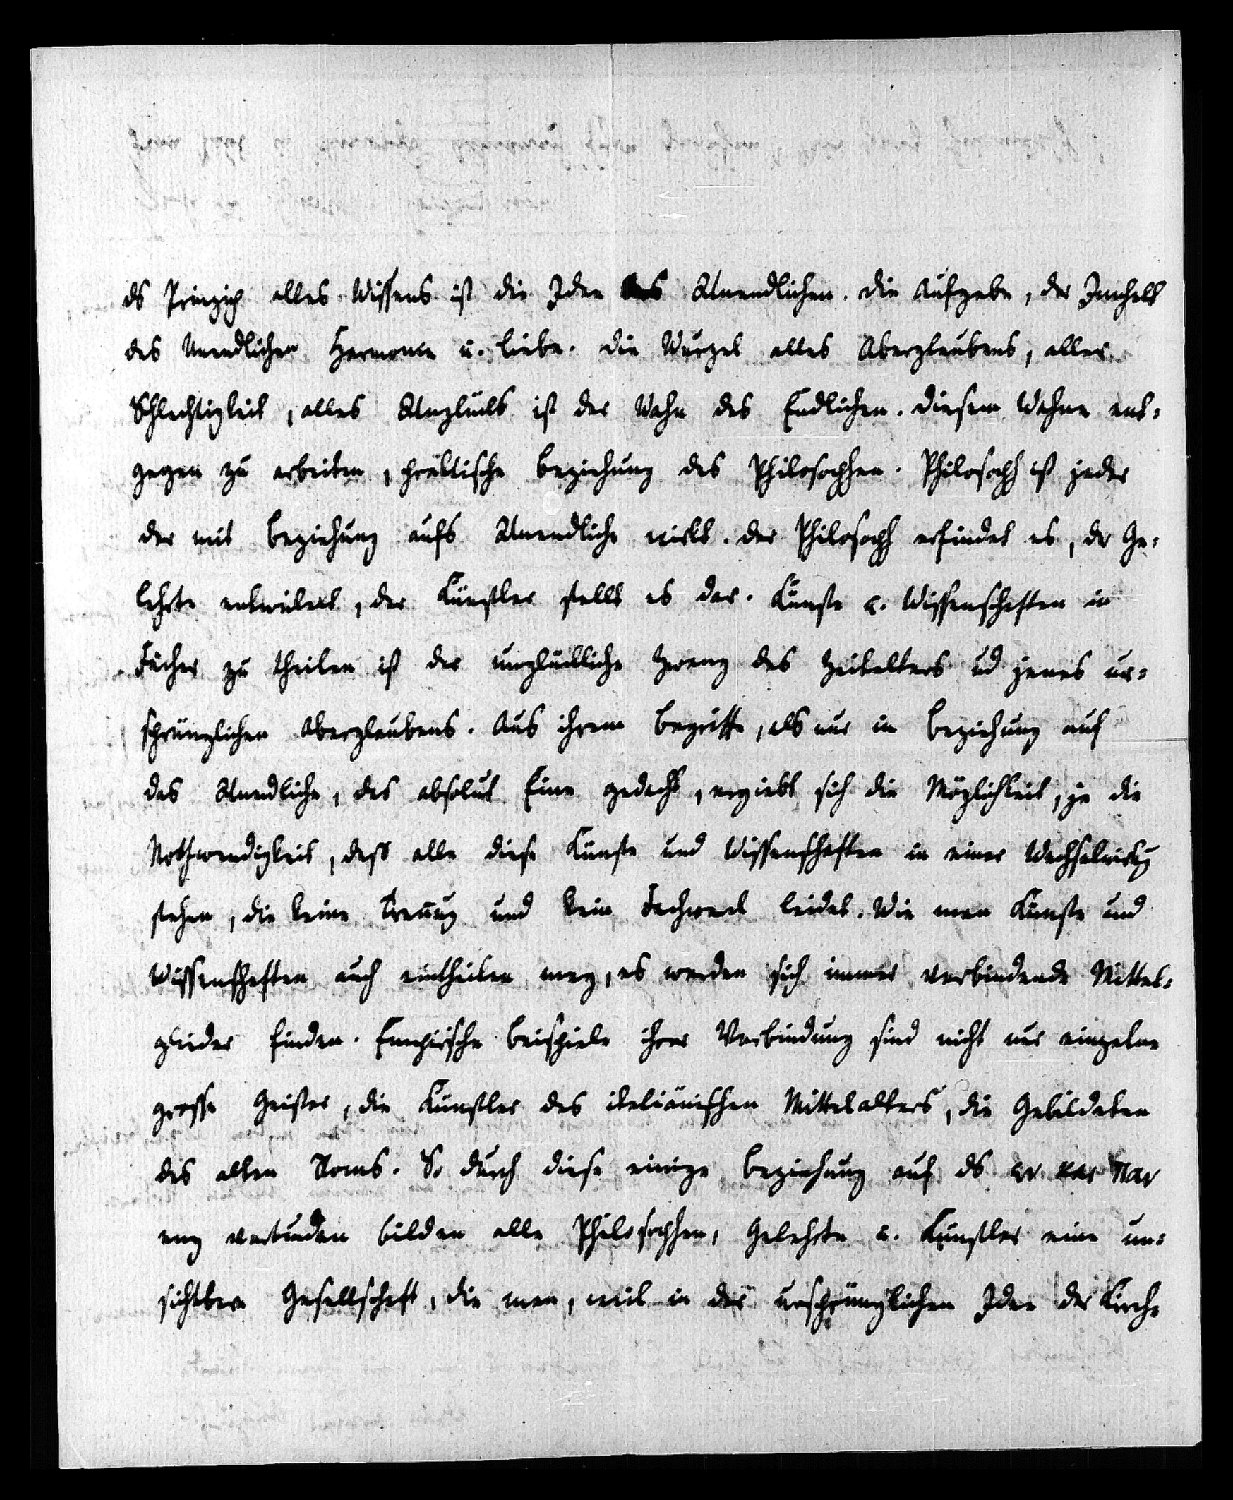 ds Prinzip alles Wissens ist die Idee des Unendlichen. Die Aufgabe, der Innhalt
des Unendlichen Harmonie u. Liebe. Die Wurzel alles Aberglaubens, aller
Schlechtigkeit, alles Unglücks ist der Wahn des Endlichen. Diesem Wahne ent=
gegen zu arbeiten, praktische Beziehung des Philosophen. Philosoph ist jeder
der mit Beziehung aufs Unendliche wirkt. Der Philosoph erfindet es, der Ge=
lehrte entwickelt, der Künstler stellt es dar. Künste u. Wissenschaften in
Fächer zu theilen ist der unglückliche Zwang des Zeitalters ud jenes ur=
sprünglichen Aberglaubens. Aus ihrem Begriffe, als nur in Beziehung auf
das Unendliche, das absolut Eine gedacht, ergiebt sich die Möglichkeit, ja die
Nothwendigkeit, daß alle diese Künste und Wissenschaften in einer Wechselwirkg
stehen, die keine Trennug und kein Fachwerk leidet. Wie man Künste und
Wissenschaften auch eintheilen mag, es werden sich immer verbindende Mittel=
glieder finden. Empirische Beispiele ihrer Verbindung sind nicht nur einzelne
grosse Geister, die Künstler des italiänischen Mittelalters, die Gebildeten
des alten Roms. So durch diese einige Beziehung auf ds εν και παν
eng verbunden bilden alle Philosophen, Gelehrte u. Künstler eine un=
sichtbare Gesellschaft, die man, weil in der ursprünglichen Idee der Kirche